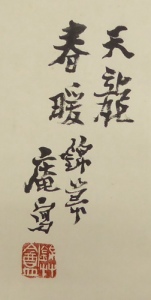 天龍
春暖 錦峯
庵寫